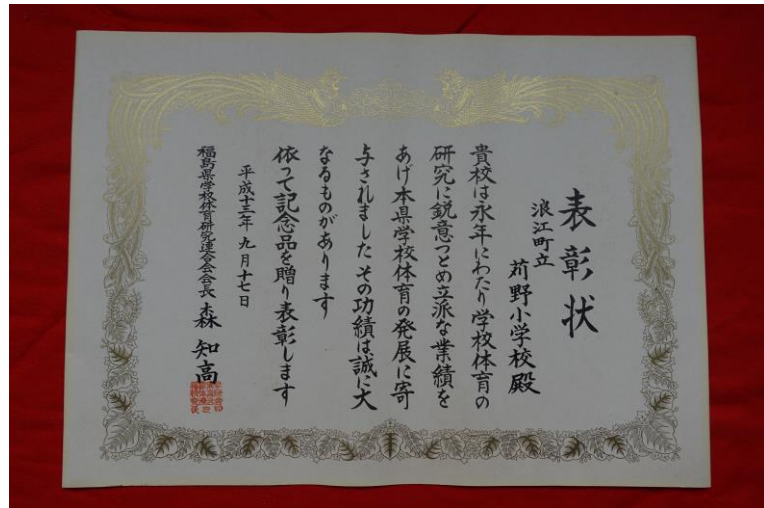 表彰状
浪江町立
苅野小学校殿
貴校は永年にわたり学校体育の
研究に鋭意つとめ立派な業績を
あげ本県学校体育の発展に寄
与されました その功績は誠に大
なるものがあります
依って記念品を贈り表彰します
平成十三年九月十七日
福島県学校体育研究連合会会長 森知高